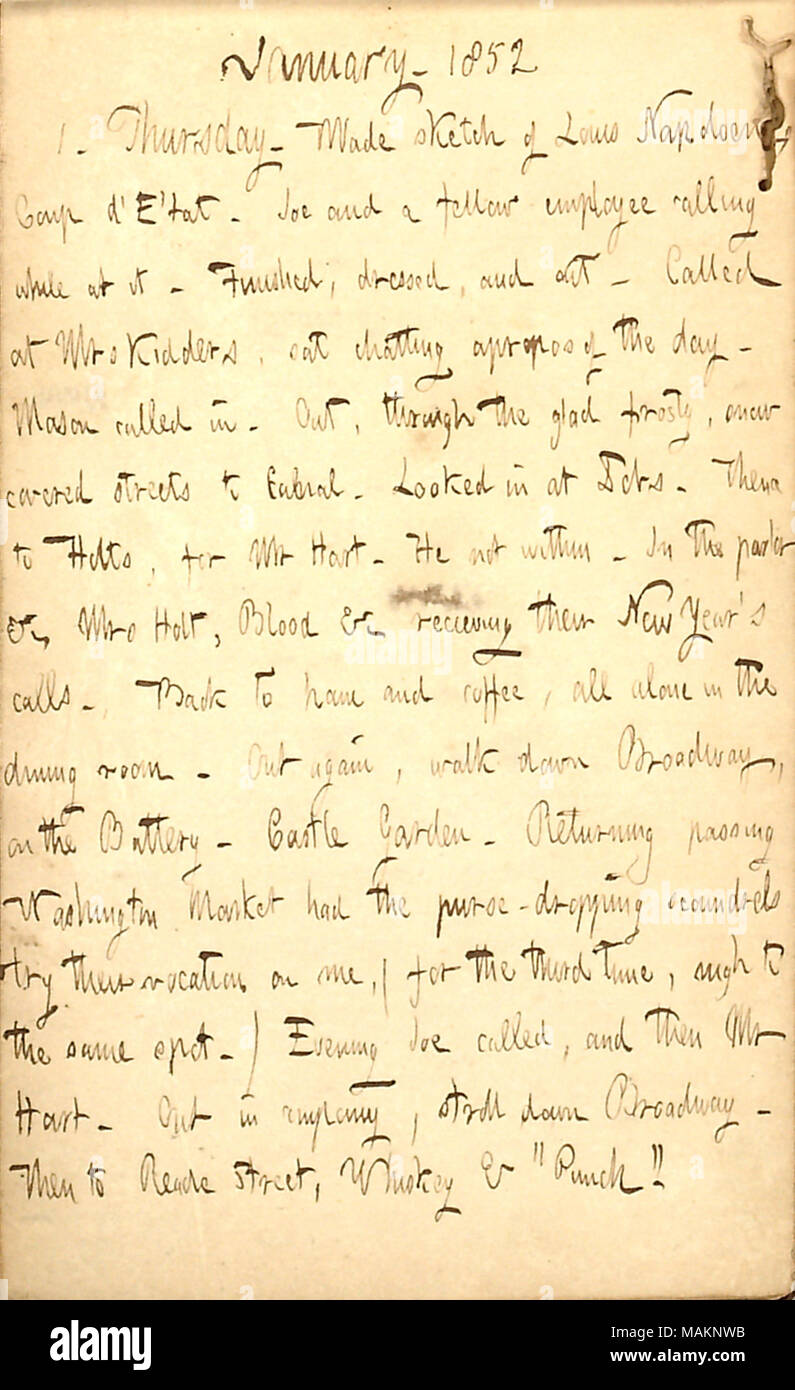 January - 1852
1 - Thursday - Made sketch of Louis Napoleon's
Coup d' E'tat - Joe and a fellow employee calling
while at it - Finished, dressed, and out - Called
at Mrs Kidders, sat chatting apropos of the day -
Mason called in - Out, through the glad frosty, snow
covered streets to Cabral - Looked in at Dcks - Thence
to Holts, for Mr Hart - He not within - In the parlor
&c, Mrs Holt, Blood &c recieving their New Year's
calls - Back to ham and coffee, all alone in the
dining room - Out again, walk down Broadway,
on the Battery - Castle Garden - Returning passing
Washington Market had the purse-dropping scoundrels
try their vocation on me, ( for the third time, nigh to
the same spot - ) Evening Joe called, and then Mr
Hart - Out in company, stroll down Broadway -
Then to Reade Street, Whiskey & "Punch".
alamy
Image ID: MAKNWB
www.alamy.com